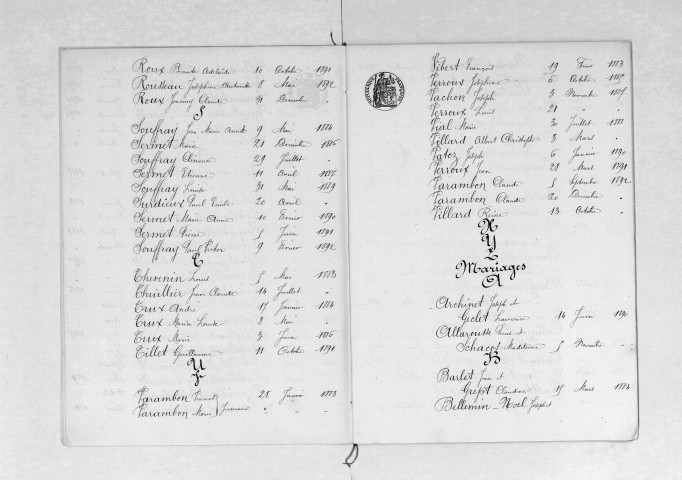 Roux Benoite Adélaïde 10 Octobre 1891
Rousseau Joséphine 8 Mai 1892
Roux Jeanny Claude 31 Décembre "
S
Souffray Jean Marie 9 Mai 1884
Sermet Marie 21 Décembre 1886
Souffray Clémence 29 Juillet "
Sermet Etienne 11 Avril 1887
Souffray Louise 31 Mai 1889
Surdieux Paul Emile 20 Avril "
Sermet Marie Anne 10 Février 1890
Sermet Pierre 5 Juin 1891
Souffray Paul Victor 9 Février 1892
T
Thevenin Louis 5 Mai 1883
Thuillier Jean Claude 14 Juillet "
Trux André 15 Janvier 1884
Trux Marie Louise 8 Mai "
Trux Marie 3 Juin 1886
Tillet Guillaume 11 Octobre 1891
U
V
Varambon 28 Janvier 1883
Varambon Marie Jumeaux " " "
Vibert François 19 Février 1883
Verroux Joséphine 6 Octobre 1885
Vachon Joseph 3 Novembre 1887
Verroux Louis 21 " "
Vial Marie 30 Juillet 1888
Villard Albert Christophe 3 Mars "
Vatoz Joseph 6 Janvier 1890
Verroux Jean 28 Mars 1891
Varambon Claude 5 Septembre 1892
Varambon Claude 20 Décembre "
Villard Reine 13 Octobre "
X
Y
Z
Mariages
A
Archinet Joseph et
Giclet 14 Juin 1890
Allarousse et
Schacos Madeleine 5 Novembre "
B
Barlet Jean et
Grépt Claudine 15 Mars 1884
Bellemin-Noël Joseph et